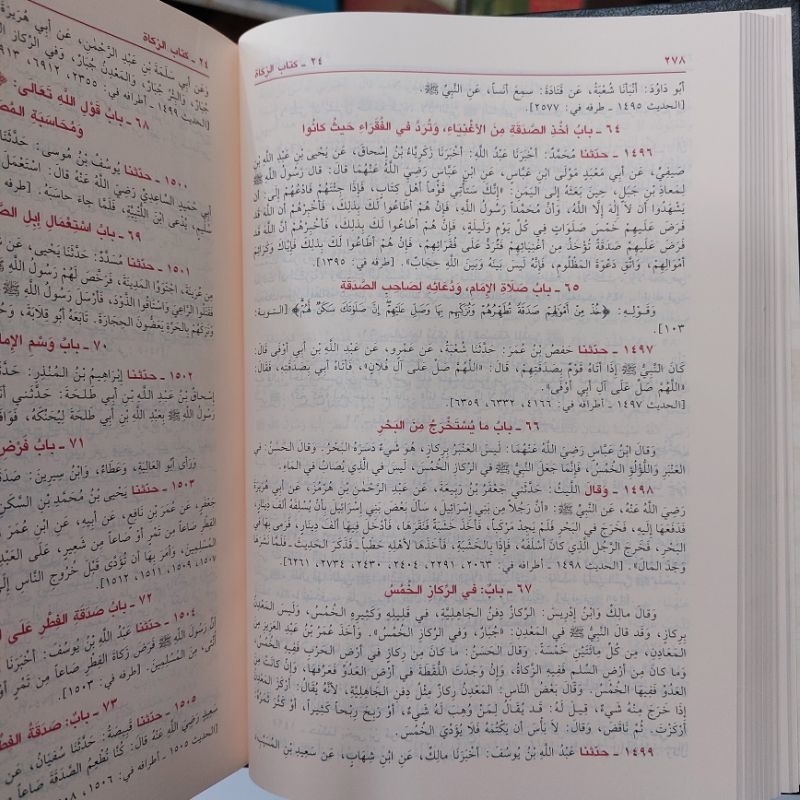 ٢٧٨
٢٤ - كتاب الزكاة
أبو دَاوُدَ: أَنْبَأَنَا شُعْبَةُ، عَنْ قَتَادَةَ: سَمِعَ أَنَساً، عَنِ النَّبِيِّ ﷺ.
[الحديث ١٤٩٥ - طرفه في: ٢٥٧٧].
٦٤ - بابُ أَخْذِ الصَّدَقَةِ مِنَ الأَغْنِيَاءِ، وَتُرَدُّ في الفُقَرَاءِ حَيثُ كانُوا
١٤٩٦ - حدّثنا مُحَمَّدٌ: أَخْبَرَنَا عَبْدُ اللَّهِ: أَخْبَرَنَا زَكَرِيَّاءُ بْنُ إِسْحَاقَ، عَنْ يَحْيى بْنِ عَبْدِ اللَّهِ بْنِ
صَيفِيٍّ، عَنْ أَبِي مَعْبَدٍ مَوْلَى ابْنِ عَبَّاسٍ، عَنِ ابْنِ عَبَّاسٍ رَضِيَ اللَّهُ عَنْهُمَا قَالَ: قَالَ رَسُولُ اللَّهِ ﷺ
لِمُعَاذِ بْنِ جَبَلٍ، حِينَ بَعَثَهُ إِلَى اليَمَنِ: «إِنَّكَ سَتَأْتِي قَوْماً أَهْلَ كِتَابٍ، فَإِذَا جِئْتَهُمْ فَادْعُهُمْ إِلَى: أَنْ
يَشْهَدُوا أَنْ لاَ إِلهَ إِلَّا اللَّهُ، وَأَنَّ مُحَمَّداً رَسُولُ اللَّهِ، فَإِنْ هُمْ أَطَاعُوا لَكَ بِذلِكَ، فَأَخْبِرْهُمْ أَنَّ اللَّهَ قَدْ
فَرَضَ عَلَيهِمْ خَمْسَ صَلَوَاتٍ في كُلِّ يَوْمٍ وَلَيلَةٍ، فَإِنْ هُمْ أَطَاعُوا لَكَ بِذلِكَ، فَأَخْبِرْهُمْ أَنَّ اللَّهَ قَدْ
فَرَضَ عَلَيهِمْ صَدَقَةً تُؤْخَذُ مِنْ أَغْنِيَائِهِمْ فَتُرَدُّ عَلَى فُقَرَائِهِمْ، فَإِنْ هُمْ أَطَاعُوا لَكَ بِذلِكَ، فَإِيَّاكَ وَكَرَائِمَ
أَمْوَالِهِمْ، وَاتَّقِ دَعْوَةَ المَظْلُومِ، فَإِنَّهُ لَيسَ بَينَهُ وَبَينَ اللَّهِ حِجَابٌ». [طرفه في: ١٣٩٥].
٦٥ - بابُ صَلاَةِ الإِمَامِ، وَدُعَائِهِ لِصَاحِبِ الصَّدَقَةِ
وَقَوْلِهِ: ﴿خُذْ مِنْ أَمْوَالِهِمْ صَدَقَةً تُطَهِّرُهُمْ وَتُزَكِّيهِم بِهَا وَصَلِّ عَلَيْهِمْ إِنَّ صَلَوَتَكَ سَكَنٌ لَهُمْ﴾ [التوبة:
١٠٣].
١٤٩٧ - حدّثنا حَفصُ بْنُ عُمَرَ: حَدَّثَنَا شُعْبَةُ، عَنْ عَمْرٍو، عَنْ عَبْدِ اللَّهِ بْنِ أَبِي أَوْفَى قَالَ:
كَانَ النَّبِيُّ ﷺ إِذَا أَتَاهُ قَوْمٌ بِصَدَقَتِهِمْ، قَالَ: «اللَّهُمَّ صَلِّ عَلَى آلِ فُلاَنٍ»، فَأَتَاهُ أَبِي بِصَدَقَتِهِ، فَقَالَ:
«اللَّهُمَّ صَلِّ عَلَى آلِ أَبِي أَوْفَى».
[الحديث ١٤٩٧ - أطرافه في: ٤١٦٦، ٦٣٣٢، ٦٣٥٩].
٦٦ - بابُ ما يُسْتَخْرَجُ مِنَ البَحْرِ
وَقَالَ ابْنُ عَبَّاسٍ رَضِيَ اللَّهُ عَنْهُمَا: لَيسَ العَنْبَرُ بِرِكازٍ، هُوَ شَيْءٌ دَسَرَهُ البَحْرُ. وَقَالَ الحَسَنُ: في
العَنْبَرِ وَاللُّؤْلُؤِ الخُمُسُ، فَإِنَّمَا جَعَلَ النَّبِيُّ ﷺ في الرِّكازِ الخُمُسَ، لَيسَ في الَّذِي يُصَابُ في المَاءِ.
١٤٩٨ - وَقَالَ اللَّيثُ: حَدَّثَنِي جَعْفَرُ بْنُ رَبِيعَةَ، عَنْ عَبْدِ الرَّحْمٰنِ بْنِ هُرْمُزَ، عَنْ أَبِي هُرَيرَةَ
رَضِيَ اللَّهُ عَنْهُ، عَنِ النَّبِيِّ ﷺ: «أَنَّ رَجُلاً مِنْ بَنِي إِسْرَائِيلَ، سَأَلَ بَعْضَ بَنِي إِسْرَائِيلَ بِأَنْ يُسْلِفَهُ أَلفَ دِينَارٍ،
فَدَفَعَهَا إِلَيهِ، فَخَرَجَ في البَحْرِ فَلَمْ يَجِدْ مَرْكَباً، فَأَخَذَ خَشَبَةً فَنَقَرَهَا، فَأَدْخَلَ فِيهَا أَلفَ دِينَارٍ، فَرَمَى بِهَا في
البَحْرِ، فَخَرَجَ الرَّجُلُ الَّذِي كانَ أَسْلَفَهُ، فَإِذَا بِالخَشَبَةِ، فَأَخَذَهَا لأَهْلِهِ حَطَباً - فَذَكَرَ الحَدِيثَ - فَلَمَّا نَشَرَهَا
وَجَدَ المَالَ». [الحديث ١٤٩٨ - أطرافه في: ٢٠٦٣، ٢٢٩١، ٢٤٠٤، ٢٤٣٠، ٢٧٣٤، ٦٢٦١].
٦٧ - بابٌ: في الرِّكازِ الخُمُسُ
وَقَالَ مالِكٌ وَابْنُ إِدْرِيسَ: الرِّكازُ دِفنُ الجَاهِلِيَّةِ، في قَلِيلِهِ وَكَثِيرِهِ الخُمُسُ، وَلَيسَ المَعْدِنُ
بِرِكازٍ، وَقَد قَالَ النَّبِيُّ ﷺ في المَعْدِنِ: «جُبَارٌ، وَفي الرِّكازِ الخُمُسُ». وَأَخَذَ عُمَرُ بْنُ عَبْدِ العَزِيزِ مِنَ
المَعَادِنِ، مِنْ كُلِّ مِائَتَينِ خَمْسَةً. وَقَالَ الحَسَنُ: ما كانَ مِنْ رِكازٍ في أَرْضِ الحَرْبِ فَفِيهِ الخُمُسُ،
وَما كانَ مِنْ أَرْضِ السِّلمِ فَفِيهِ الزَّكاةُ، وَإِنْ وَجَدْتَ اللُّقَطَةَ في أَرْضِ العَدُوِّ فَعَرِّفهَا، وَإِنْ كانَتْ مِنَ
العَدُوِّ فَفِيهَا الخُمُسُ. وَقَالَ بَعْضُ النَّاسِ: المَعْدِنُ رِكازٌ مِثْلُ دِفنِ الجَاهِلِيَّةِ، لأَنَّهُ يُقَالُ: أَرْكَزَ المَعْدِنُ
إِذَا خَرَجَ مِنْهُ شَيْءٌ، قِيلَ لَهُ: قَدْ يُقَالُ لِمَنْ وُهِبَ لَهُ شَيْءٌ، أَوْ رَبِحَ رِبْحاً كَثِيراً، أَوْ كَثُرَ ثَمَرُهُ:
أَرْكَزْتَ. ثُمَّ نَاقَضَ، وَقَالَ: لاَ بَأْسَ أَنْ يَكْتُمَهُ فَلاَ يُؤَدِّيَ الخُمُسَ.
١٤٩٩ - حدّثنا عَبْدُ اللَّهِ بْنُ يُوسُفَ: أَخْبَرَنَا مالِكٌ، عَنِ ابْنِ شِهَابٍ، عَنْ سَعِيدِ بْنِ المُسَيَّبِ،
٢٤ - كتاب الزكاة
وَعَنْ أَبِي سَلَمَةَ بْنِ عَبْدِ الرَّحْمٰنِ، عَنْ أَبِي هُرَيرَةَ
جُبَارٌ، وَالبِئْرُ جُبَارٌ، وَالمَعْدِنُ جُبَارٌ، وَفي الرِّكازِ
[الحديث ١٤٩٩ - أطرافه في: ٢٣٥٥، ٦٩١٢، ٦٩١٣
٦٨ - بابُ قَوْلِ اللَّهِ تَعَالَى:
وَمُحَاسَبَةِ
١٥٠٠ - حدّثنا يُوسُفُ بْنُ مُوسى: حَدَّثَنَا
أَبِي حُمَيدٍ السَّاعِدِيِّ رَضِيَ اللَّهُ عَنْهُ قَالَ: اسْتَعْمَلَ
سُلَيمٍ، يُدْعَى ابْنَ اللُّتْبِيَّةِ، فَلَمَّا جاءَ حاسَبَهُ. [طرفه
٦٩ - بابُ اسْتِعْمَالِ إِبِلِ
١٥٠١ - حدّثنا مُسَدَّدٌ: حَدَّثَنَا يَحْيى، عَنْ
مِنْ عُرَينَةَ، اجْتَوَوُا المَدِينَةَ، فَرَخَّصَ لَهُمْ رَسُولُ اللَّهِ
فَقَتَلُوا الرَّاعِيَ وَاسْتَاقُوا الذَّوْدَ، فَأَرْسَلَ رَسُولُ اللَّهِ ﷺ
وَتَرَكَهُمْ بِالحَرَّةِ يَعَضُّونَ الحِجَارَةَ. تَابَعَهُ أَبُو قِلاَبَةَ،
٧٠ - بابُ وَسْمِ الإِمَامِ
١٥٠٢ - حدّثنا إِبْرَاهِيمُ بْنُ المُنْذِرِ: حَدَّثَنَا
إِسْحَاقُ بْنُ عَبْدِ اللَّهِ بْنِ أَبِي طَلحَةَ: حَدَّثَنِي أَنَسُ
رَسُولِ اللَّهِ ﷺ بِعَبْدِ اللَّهِ بْنِ أَبِي طَلحَةَ لِيُحَنِّكَهُ،
٧١ - بابُ فَرْضِ
وَرَأَى أَبُو العَالِيَةِ، وَعَطَاءٌ، وَابْنُ سِيرِينَ:
١٥٠٣ - حدّثنا يَحْيى بْنُ مُحَمَّدِ بْنِ السَّكَنِ
جَعْفَرٍ، عَنْ عُمَرَ بْنِ نَافِعٍ، عَنْ أَبِيهِ، عَنِ ابْنِ عُمَرَ
الفِطْرِ صَاعاً مِنْ تَمْرٍ أَوْ صَاعاً مِنْ شَعِيرٍ، عَلَى العَبْدِ
المُسْلِمِينَ، وَأَمَرَ بِهَا أَنْ تُؤَدَّى قَبْلَ خُرُوجِ النَّاسِ إِلَى
١٥٠٧، ١٥٠٩، ١٥١١، ١٥١٢].
٧٢ - بابُ صَدَقَةِ الفِطْرِ عَلَى
١٥٠٤ - حدّثنا عَبْدُ اللَّهِ بْنُ يُوسُفَ: أَخْبَرَنَا
أَنَّ رَسُولَ اللَّهِ ﷺ فَرَضَ زَكاةَ الفِطْرِ صَاعاً مِنْ تَمْرٍ أَوْ
أُنْثَى، مِنَ المُسْلِمِينَ. [طرفه في: ١٥٠٣].
٧٣ - بابٌ: صَدَقَةُ الفِطْرِ
١٥٠٥ - حدّثنا قَبِيصَةُ: حَدَّثَنَا سُفيَانُ، عَنْ
سَعِيدٍ رَضِيَ اللَّهُ عَنْهُ قَالَ: كُنَّا نُطْعِمُ الصَّدَقَةَ صَاعاً
الحديث ١٥٠٥ - أطرافه في: ١٥٠٦، ١٥٠٨،